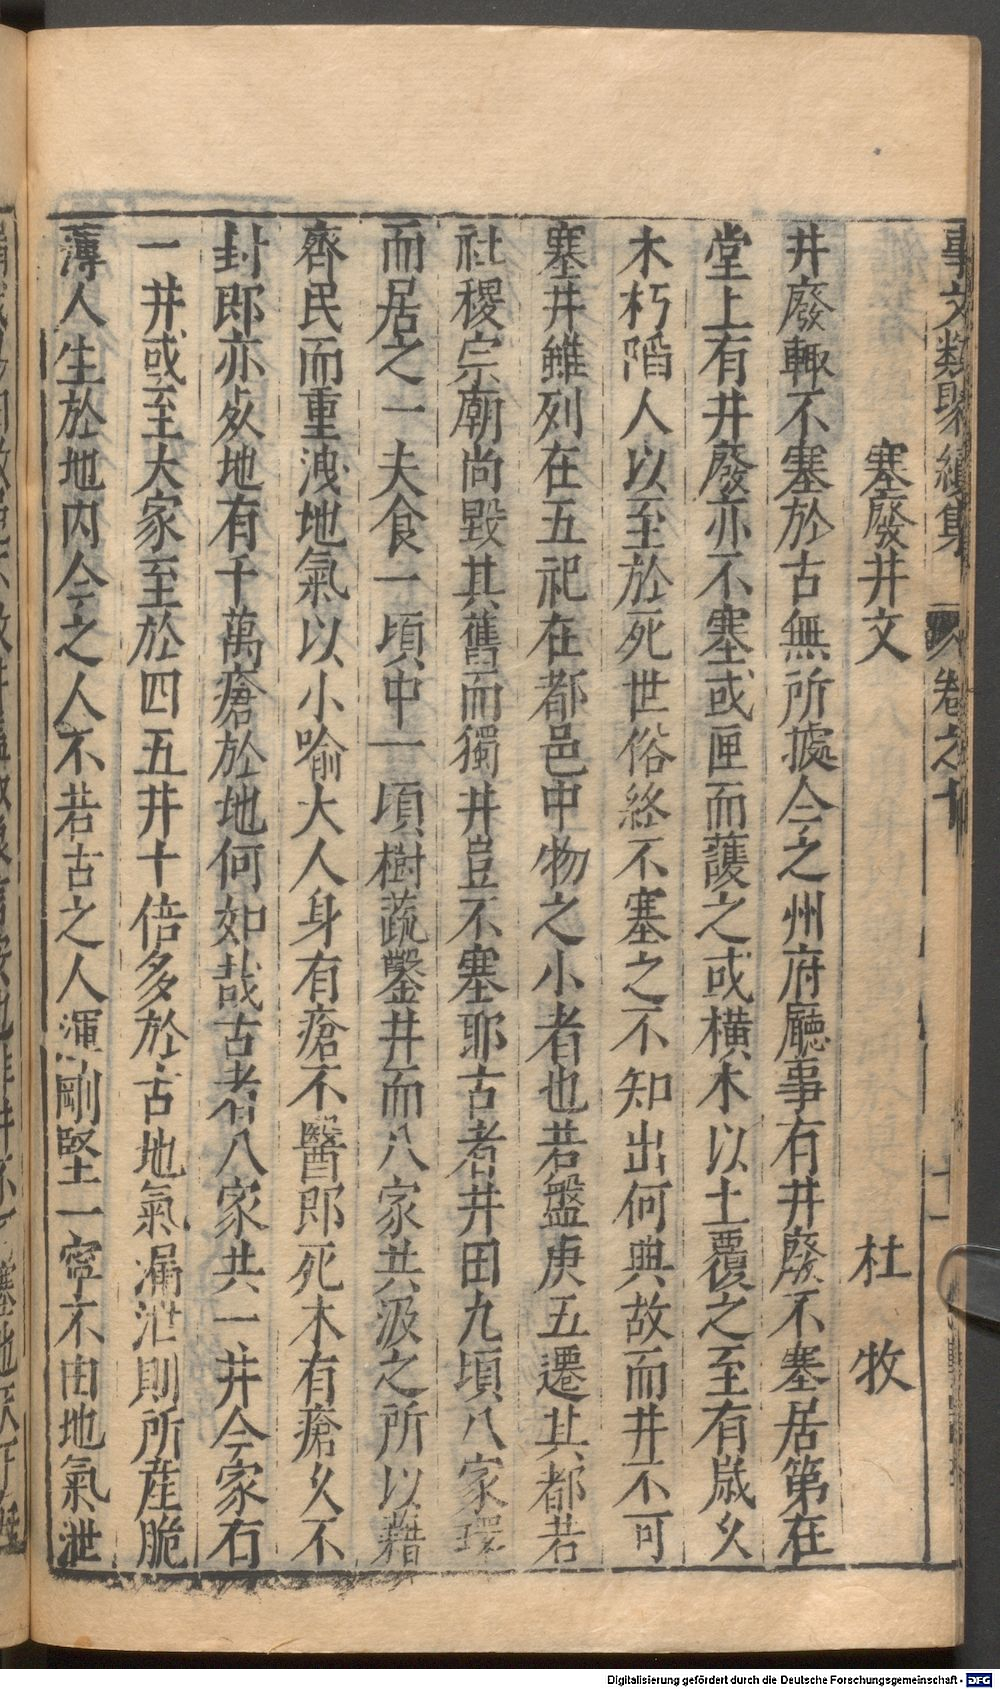 事文類聚續集 卷之十 十一
塞廢井文 杜牧
井廢輙不塞於古無所據今之州府廳事有井廢不塞居第在
堂上有井廢亦不塞或匣而護之或橫木以土覆之至有歲久
木朽陷人以至於死世俗終不塞之不知出何典故而井不可
塞井雖列在五祀在都邑中物之小者也若盤庚五遷其都若
社稷宗廟尚毀其舊而獨井豈不塞耶古者井田九頃八家環
而居之一夫食一頃中一頃樹蔬鑿井而八家共汲之所以藉
齊民而重洩地氣以小喻大人身有瘡不醫卽死木有瘡久不
封卽亦㱙地有千萬瘡於地何如哉古者八家共一井今家有
一井或至大家至於四五井十倍多於古地氣漏泄則所產脆
薄人生於地內今之人不若古之人渾剛堅一寧不由地氣泄
Digitalisierung gefördert durch die Deutsche Forschungsgemeinschaft - DFG